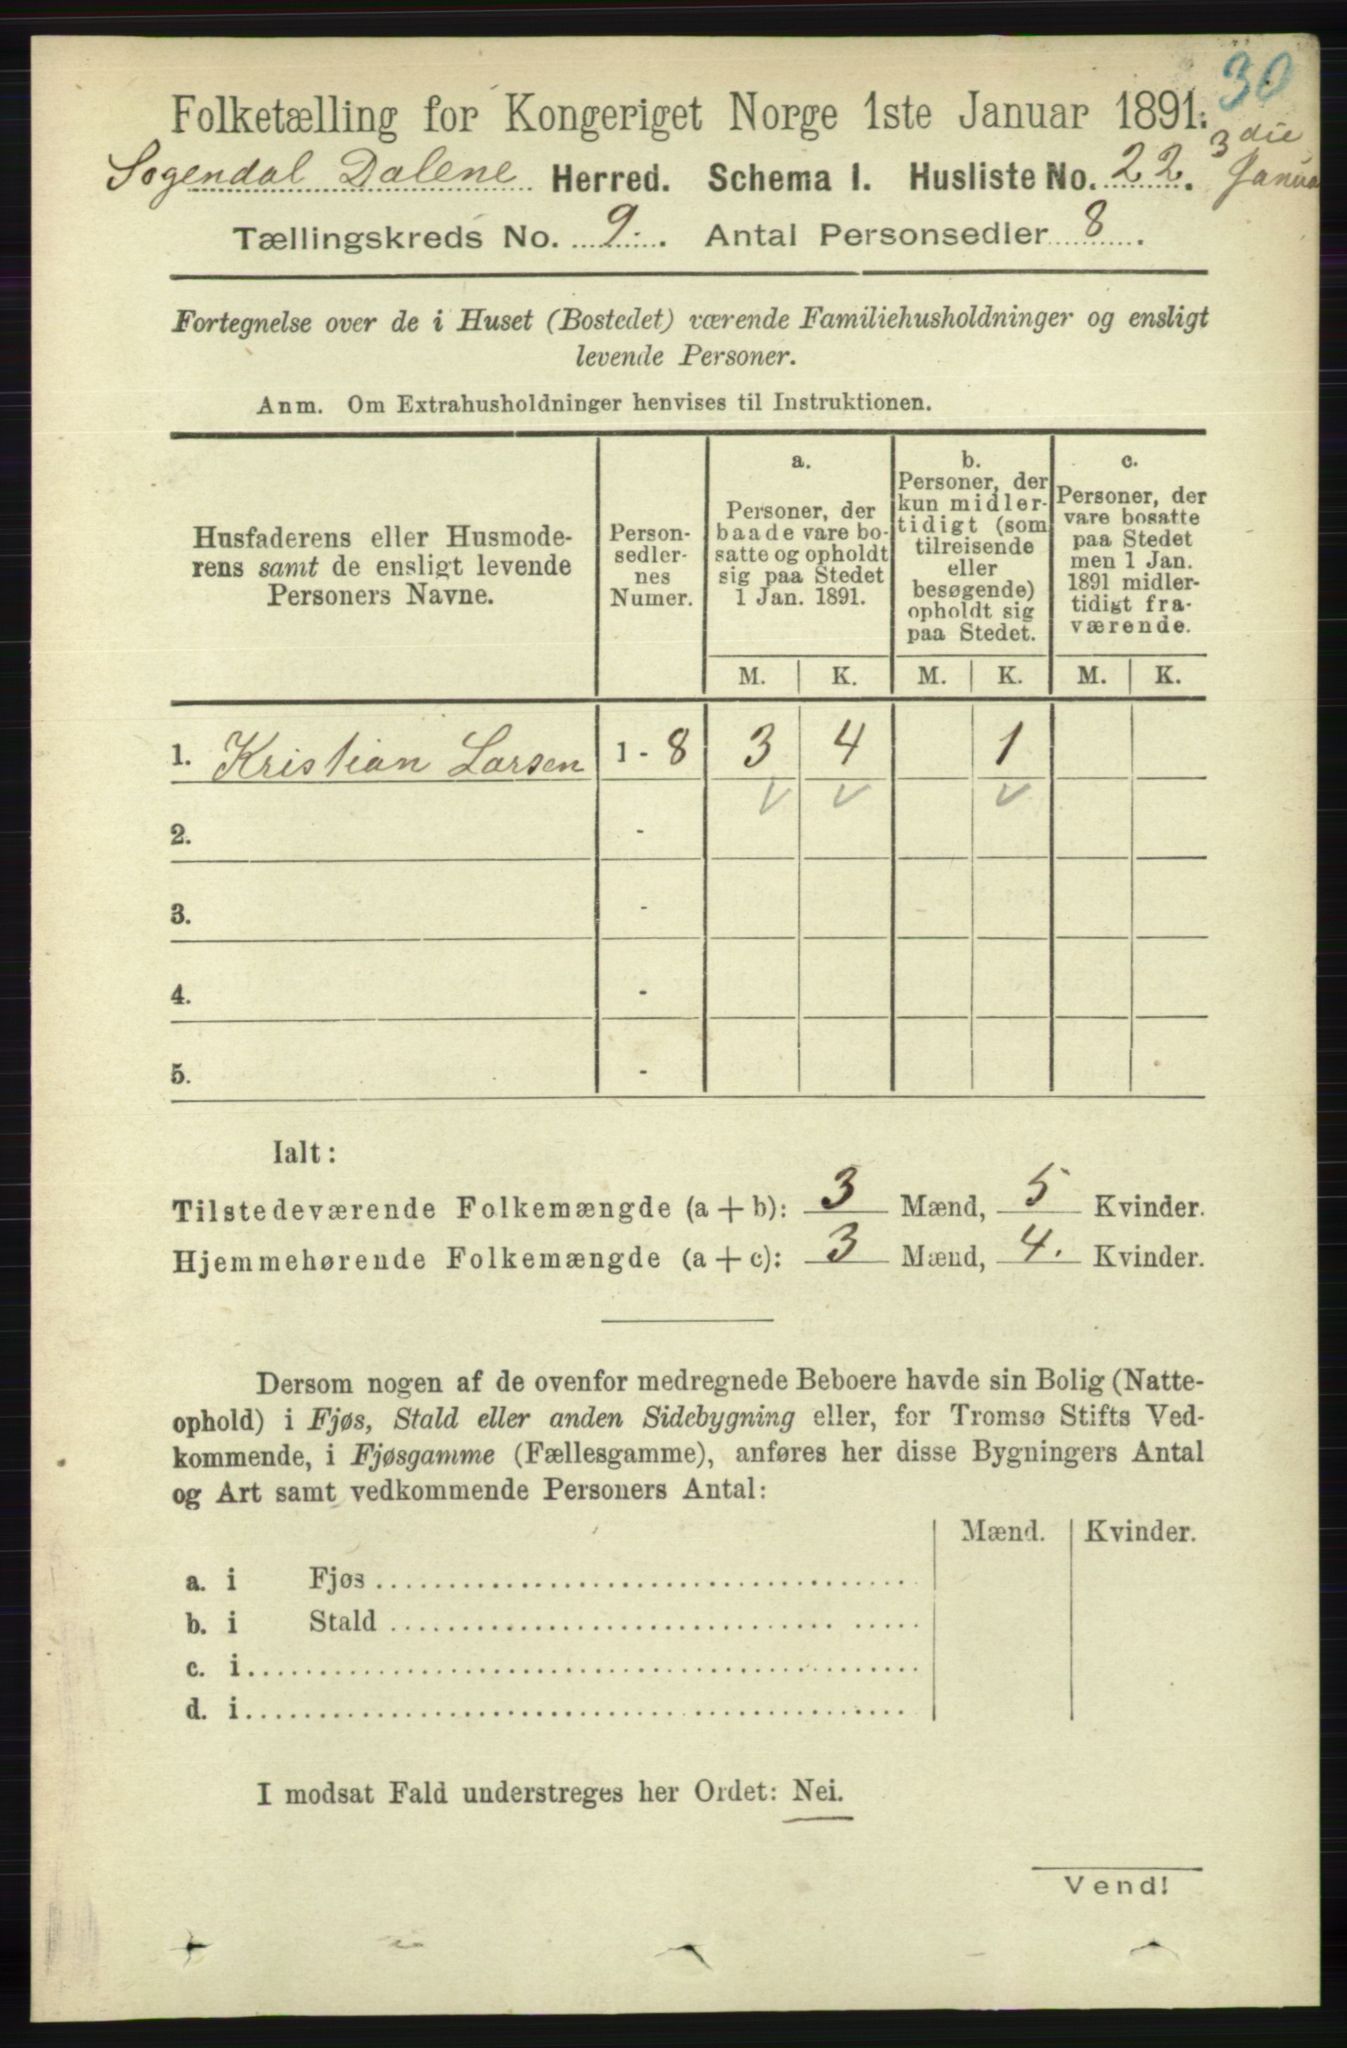 30
Folketælling for Kongeriget Norge 1ste Januar 1891.
3die
Sogendal Dalene Herred. Schema I. Husliste No. 22. Janua
Tællingskreds No. 9. Antal Personsedler 8.
Fortegnelse over de i Huset (Bostedet) værende Familiehusholdninger og ensligt
levende Personer.
Anm. Om Extrahusholdninger henvises til Instruktionen.
Husfaderens eller Husmode-
rens samt de ensligt levende
Personers Navne.
Person-
sedler-
nes
Numer.
a.
Personer, der
baade vare bo-
satte og opholdt
sig paa Stedet
1 Jan. 1891.
b.
Personer, der
kun midler-
tidigt (som
tilreisende
eller
besøgende)
opholdt sig
paa Stedet.
c.
Personer, der
vare bosatte
paa Stedet
men 1 Jan.
1891 midler-
tidigt fra-
værende.
M. K. M. K. M. K.
1. Kristian Larsen 1 - 8 3 4 1
2. -
3. -
4. -
5. -
Ialt:
Tilstedeværende Folkemængde (a + b): 3 Mænd, 5 Kvinder.
Hjemmehørende Folkemængde (a + c): 3 Mænd, 4. Kvinder.
Dersom nogen af de ovenfor medregnede Beboere havde sin Bolig (Natte-
ophold) i Fjøs, Stald eller anden Sidebygning eller, for Tromsø Stifts Ved-
kommende, i Fjøsgamme (Fællesgamme), anføres her disse Bygningers Antal
og Art samt vedkommende Personers Antal:
Mænd. Kvinder.
a. i Fjøs
b. i Stald
c. i
d. i
I modsat Fald understreges her Ordet: Nei.
Vend!